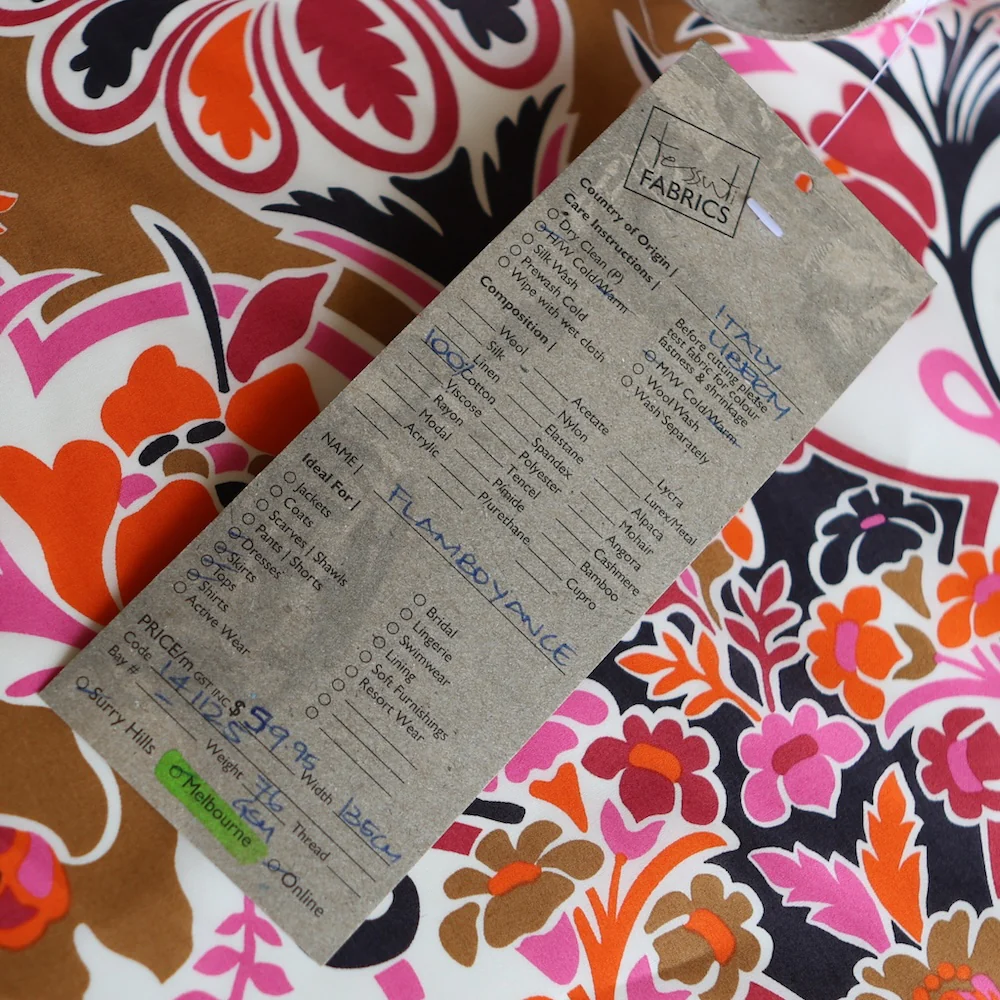 Tessuti
FABRICS
Country of Origin | ITALY
LIBERTY
Care Instructions |
Dry Clean (P)
H/W Cold/Warm
Silk Wash
Prewash Cold
Wipe with wet cloth
Before cutting please
test fabric for colour
fastness & shrinkage
M/W Cold/Warm
Wool Wash
Wash Separately
Composition |
Wool
Silk
Linen
100% Cotton
Viscose
Rayon
Modal
Acrylic
Acetate
Nylon
Elastane
Spandex
Polyester
Tencel
Pimide
Plurethane
Lycra
Lurex/Metal
Alpaca
Mohair
Angora
Cashmere
Bamboo
Cupro
NAME | FLAMBOYANCE
Ideal For |
Jackets
Coats
Scarves | Shawls
Pants | Shorts
Dresses
Skirts
Tops
Shirts
Active Wear
Bridal
Lingerie
Swimwear
Lining
Soft Furnishings
Resort Wear
PRICE/m GST INC $ 59.95
Code 141125 Width 135cm
Bay # - Weight 76 GSM Thread
Surry Hills Melbourne Online